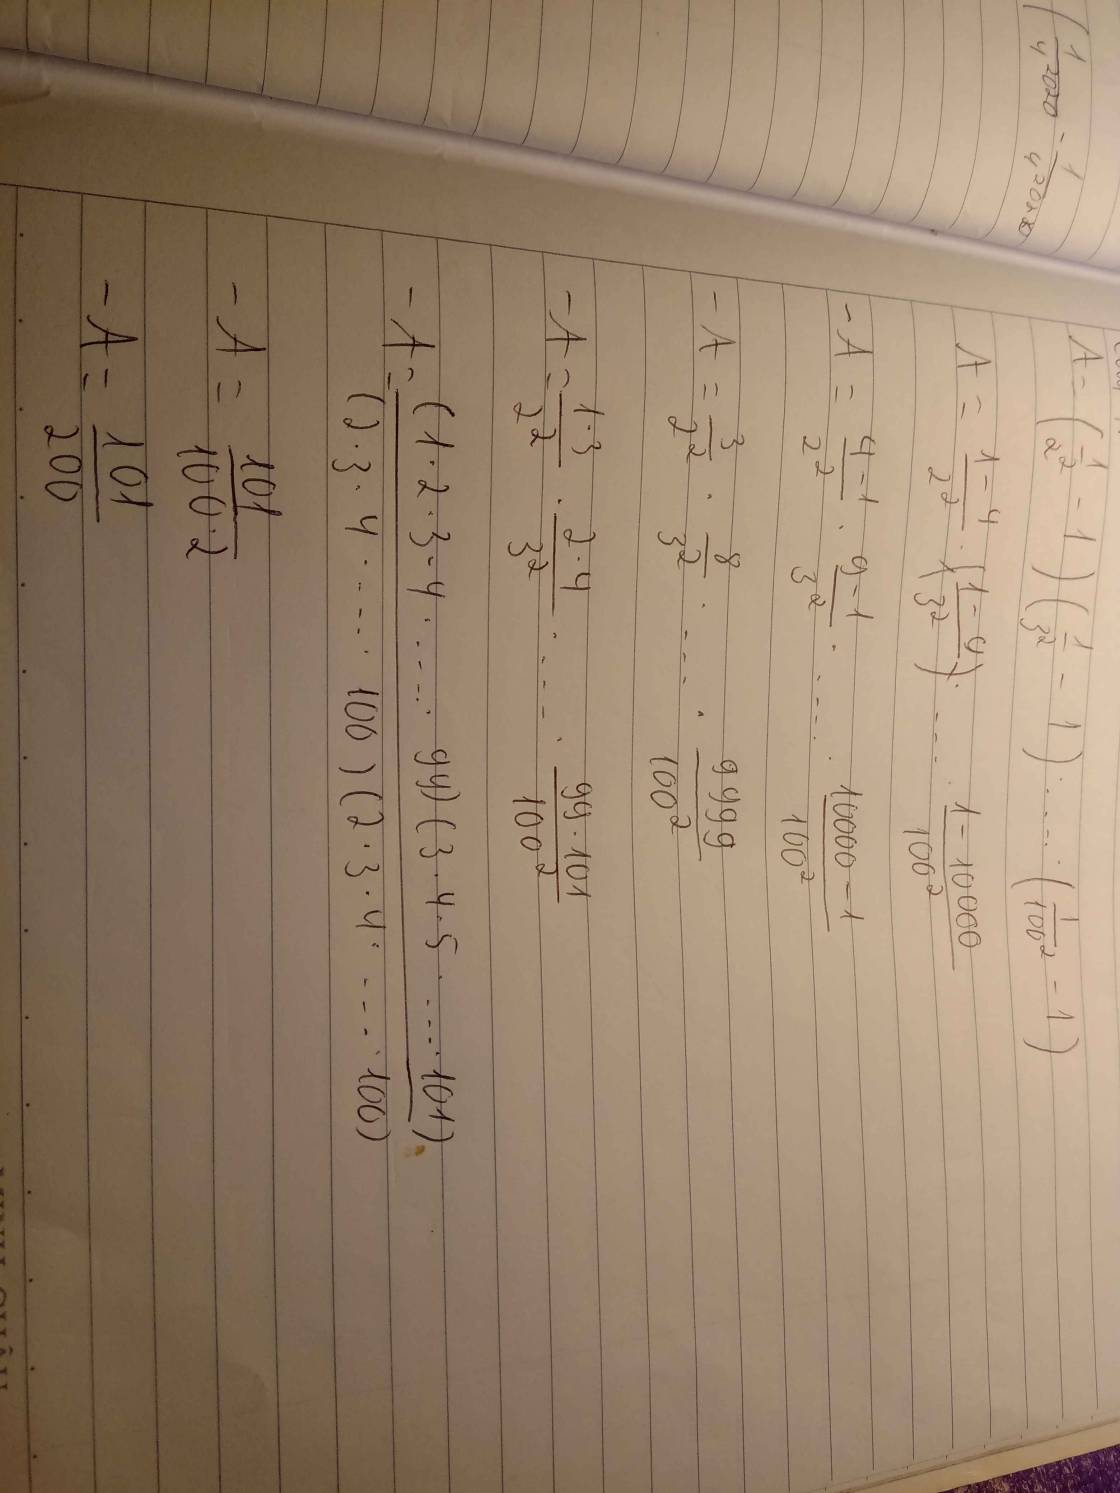 (1/4²⁰²⁰ - 1/4²⁰²⁰
A = (1/2² - 1)(1/3² - 1) ..... (1/100² - 1)
A = 1-4/2² . (1-4/3²) . .... . 1-10000/100²
-A = 4-1/2² . 9-1/3² . .... . 10000-1/100²
-A = 3/2² . 8/3² . .... . 9999/100²
-A = 1.3/2² . 2.4/3² . .... . 99.101/100²
-A = (1.2.3.4. .... 99)(3.4.5. .... .101)/(2.3.4. .... . 100)(2.3.4. .... .100)
-A = 101/100.2
-A = 101/200